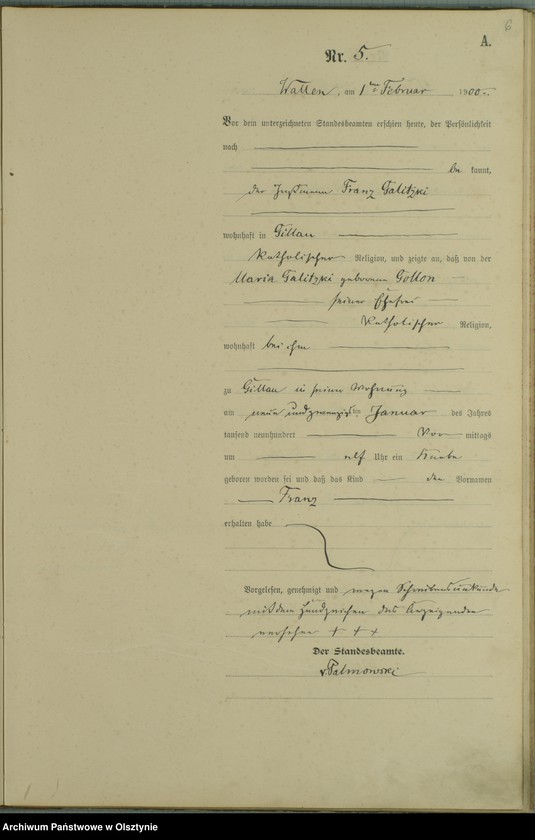 6
A.
Nr. 5.
Watten, am 1ten Februar 1900.
Vor dem unterzeichneten Standesbeamten erschien heute, der Persönlichkeit
nach
be kannt,
der Instmann Franz Galitzki
wohnhaft in Gillau
katholischer Religion, und zeigte an, daß von der
Maria Galitzki geborene Gollon
seiner Ehefrau
katholischer Religion,
wohnhaft bei ihm
zu Gillau in seiner Wohnung
am neun und zwanzigsten Januar des Jahres
tausend neunhundert Vor mittags
um elf Uhr ein Knabe
geboren worden sei und daß das Kind den Vornamen
Franz
erhalten habe
Vorgelesen, genehmigt und wegen Schreibensunkunde
mit dem Handzeichen des Anzeigenden
versehen + + +
Der Standesbeamte.
v. Palmowski
Archiwum Państwowe w Olsztynie